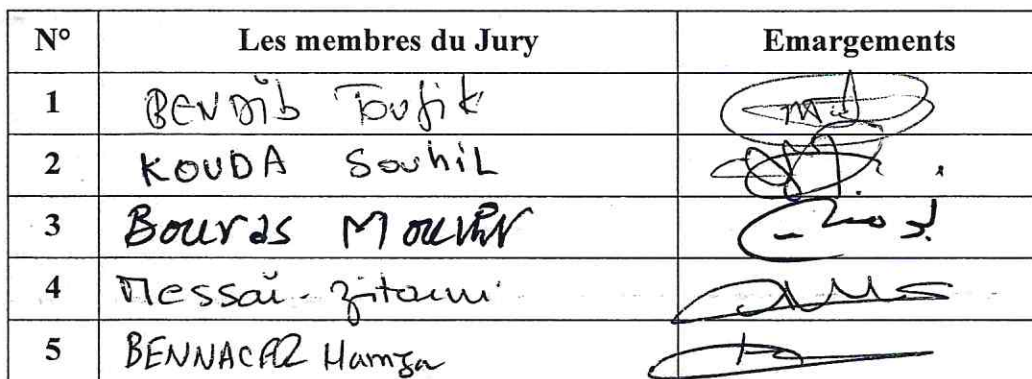 N° Les membres du Jury Emargements
1 BENDIB Toufik
2 KOUDA Souhil
3 Bouras Mounir
4 Messai - Zitouni
5 BENNACER Hamza